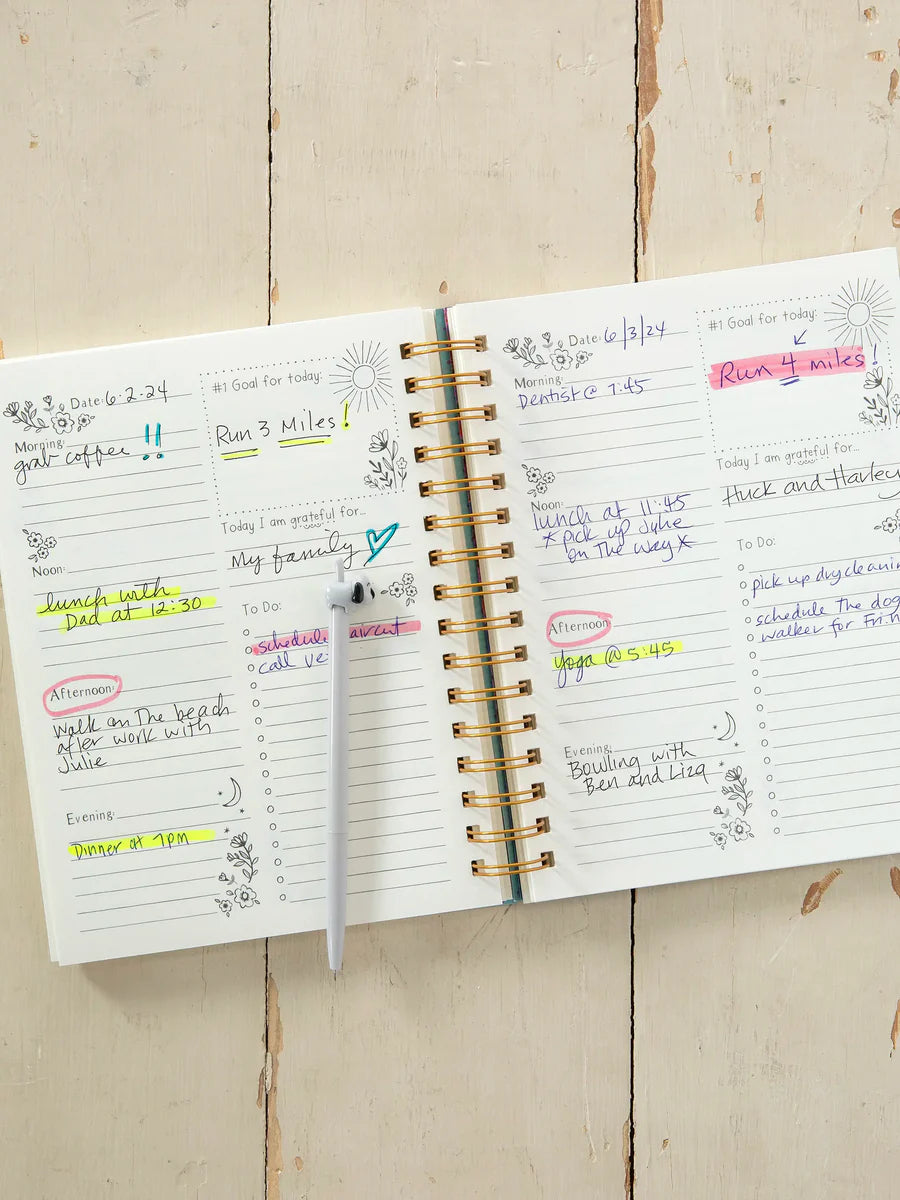 Date: 6.2.24
Morning:
grab coffee !!
Noon:
lunch with
Dad at 12:30
Afternoon:
walk on the beach
after work with
Julie
Evening:
Dinner at 7pm
#1 Goal for today:
Run 3 Miles!
Today I am grateful for...
My family
To Do:
schedule
call
Date: 6/3/24
Morning:
Dentist @ 7:45
Noon:
lunch at 11:45
*pick up Julie
on the way*
Afternoon:
Yoga @ 5:45
Evening:
Bowling with
Ben and Liza
#1 Goal for today:
Run 4 miles!
Today I am grateful for...
Huck and Harley
To Do:
pick up
schedule the dog
walker for